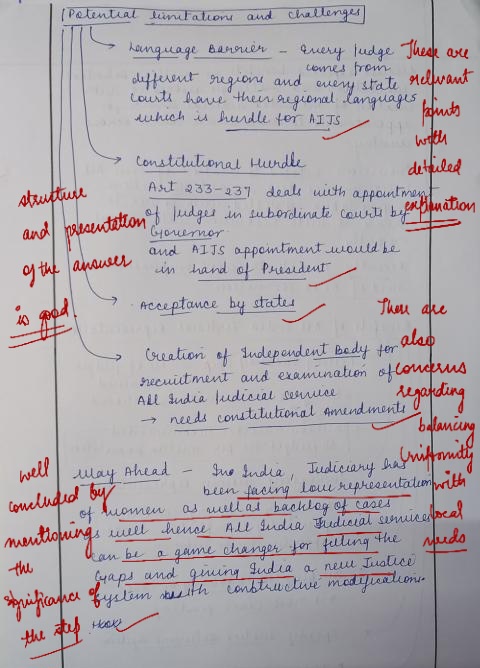 Potential limitations and challenges
Language Barrier - Every Judge
comes from
different regions and every state
courts have their regional languages
which is hurdle for AIJS
Constitutional Hurdle
Art 233-237 deals with appointment
of Judges in subordinate courts by
Governor
and AIJS appointment would be
in hand of President
Acceptance by states
Creation of Independent Body for
recruitment and examination of
All India Judicial service
→ needs constitutional Amendments
Way Ahead - In India, Judiciary has
been facing low representation
of women as well as backlog of cases
as well hence All India Judicial services
can be a game changer for filling the
gaps and giving India a new Justice
system with constructive modification.
These are
relevant
points
with
detailed
explanation
structure
and presentation
of the answer
is good.
There are
also
concerns
regarding
balancing
Uniformity
with
local
needs
well
concluded by
mentioning
the
significance of
the step.